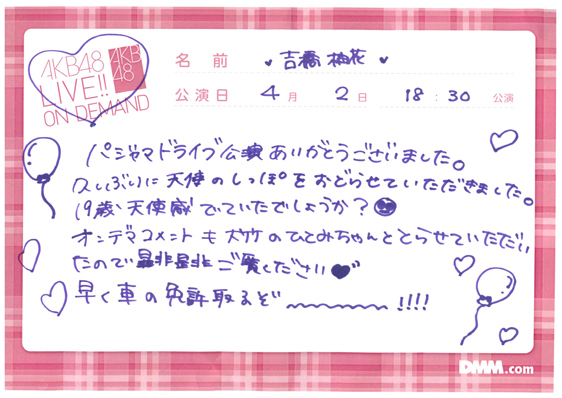 AKB48
LIVE!!
ON DEMAND
AKB
48
名前 吉橋 柚花
公演日 4月 2日 18:30 公演
パジャマドライブ公演ありがとうございました。
久しぶりに天使のしっぽをおどらせていただきました。
19歳、天使感でていたでしょうか?
オンデマコメントも大竹のひとみちゃんととらせていただい
たので是非是非ご覧ください
早く車の免許取るぞ〜〜〜!!!!
DMM.com